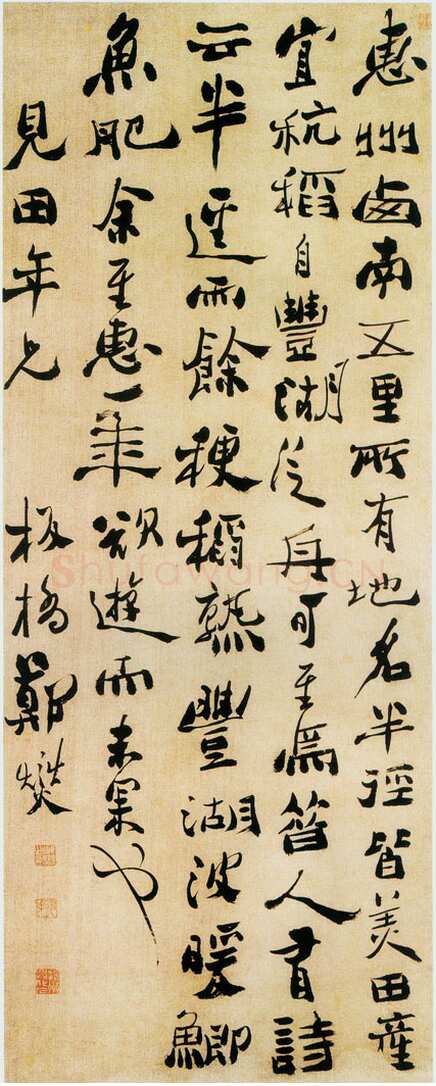 惠州西南五里所有地名半徑皆美田產
宜秔稻自豐湖泛舟可至焉昔人有詩
云半逕雨餘粳稻熟豐湖波暖鯽
魚肥余至惠一年欲遊而未果也
見田年兄 板橋鄭燮
Shufawang.CN